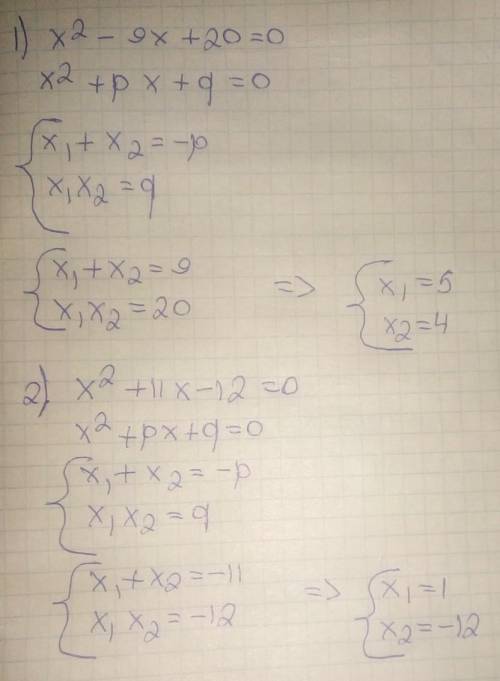 1) x² - 9x + 20 = 0
x² + p x + q = 0
x₁ + x₂ = -p
x₁ x₂ = q
x₁ + x₂ = 9
x₁ x₂ = 20
=>
x₁ = 5
x₂ = 4
2) x² + 11x - 12 = 0
x² + px + q = 0
x₁ + x₂ = -p
x₁ x₂ = q
x₁ + x₂ = -11
x₁ x₂ = -12
=>
x₁ = 1
x₂ = -12